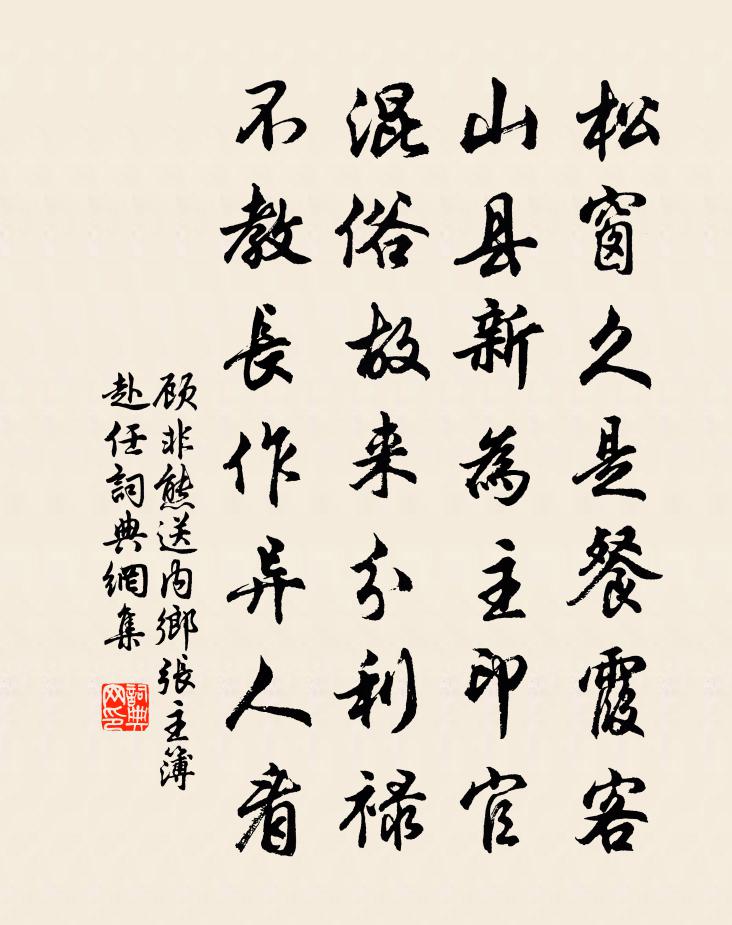 松窗久是餐霞客
山县新為主印官
混俗故来分利禄
不教長作异人看
顾非熊送内鄉張主簿
赴任詞典網集
詞典
网印